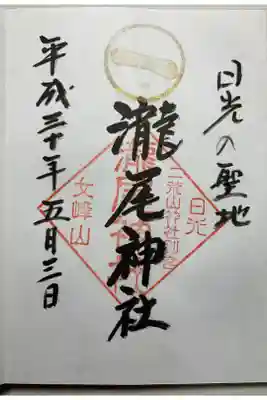 日光の聖地
瀧尾神社
平成三十年五月三日
日光
二荒山神社別宮
女峰山